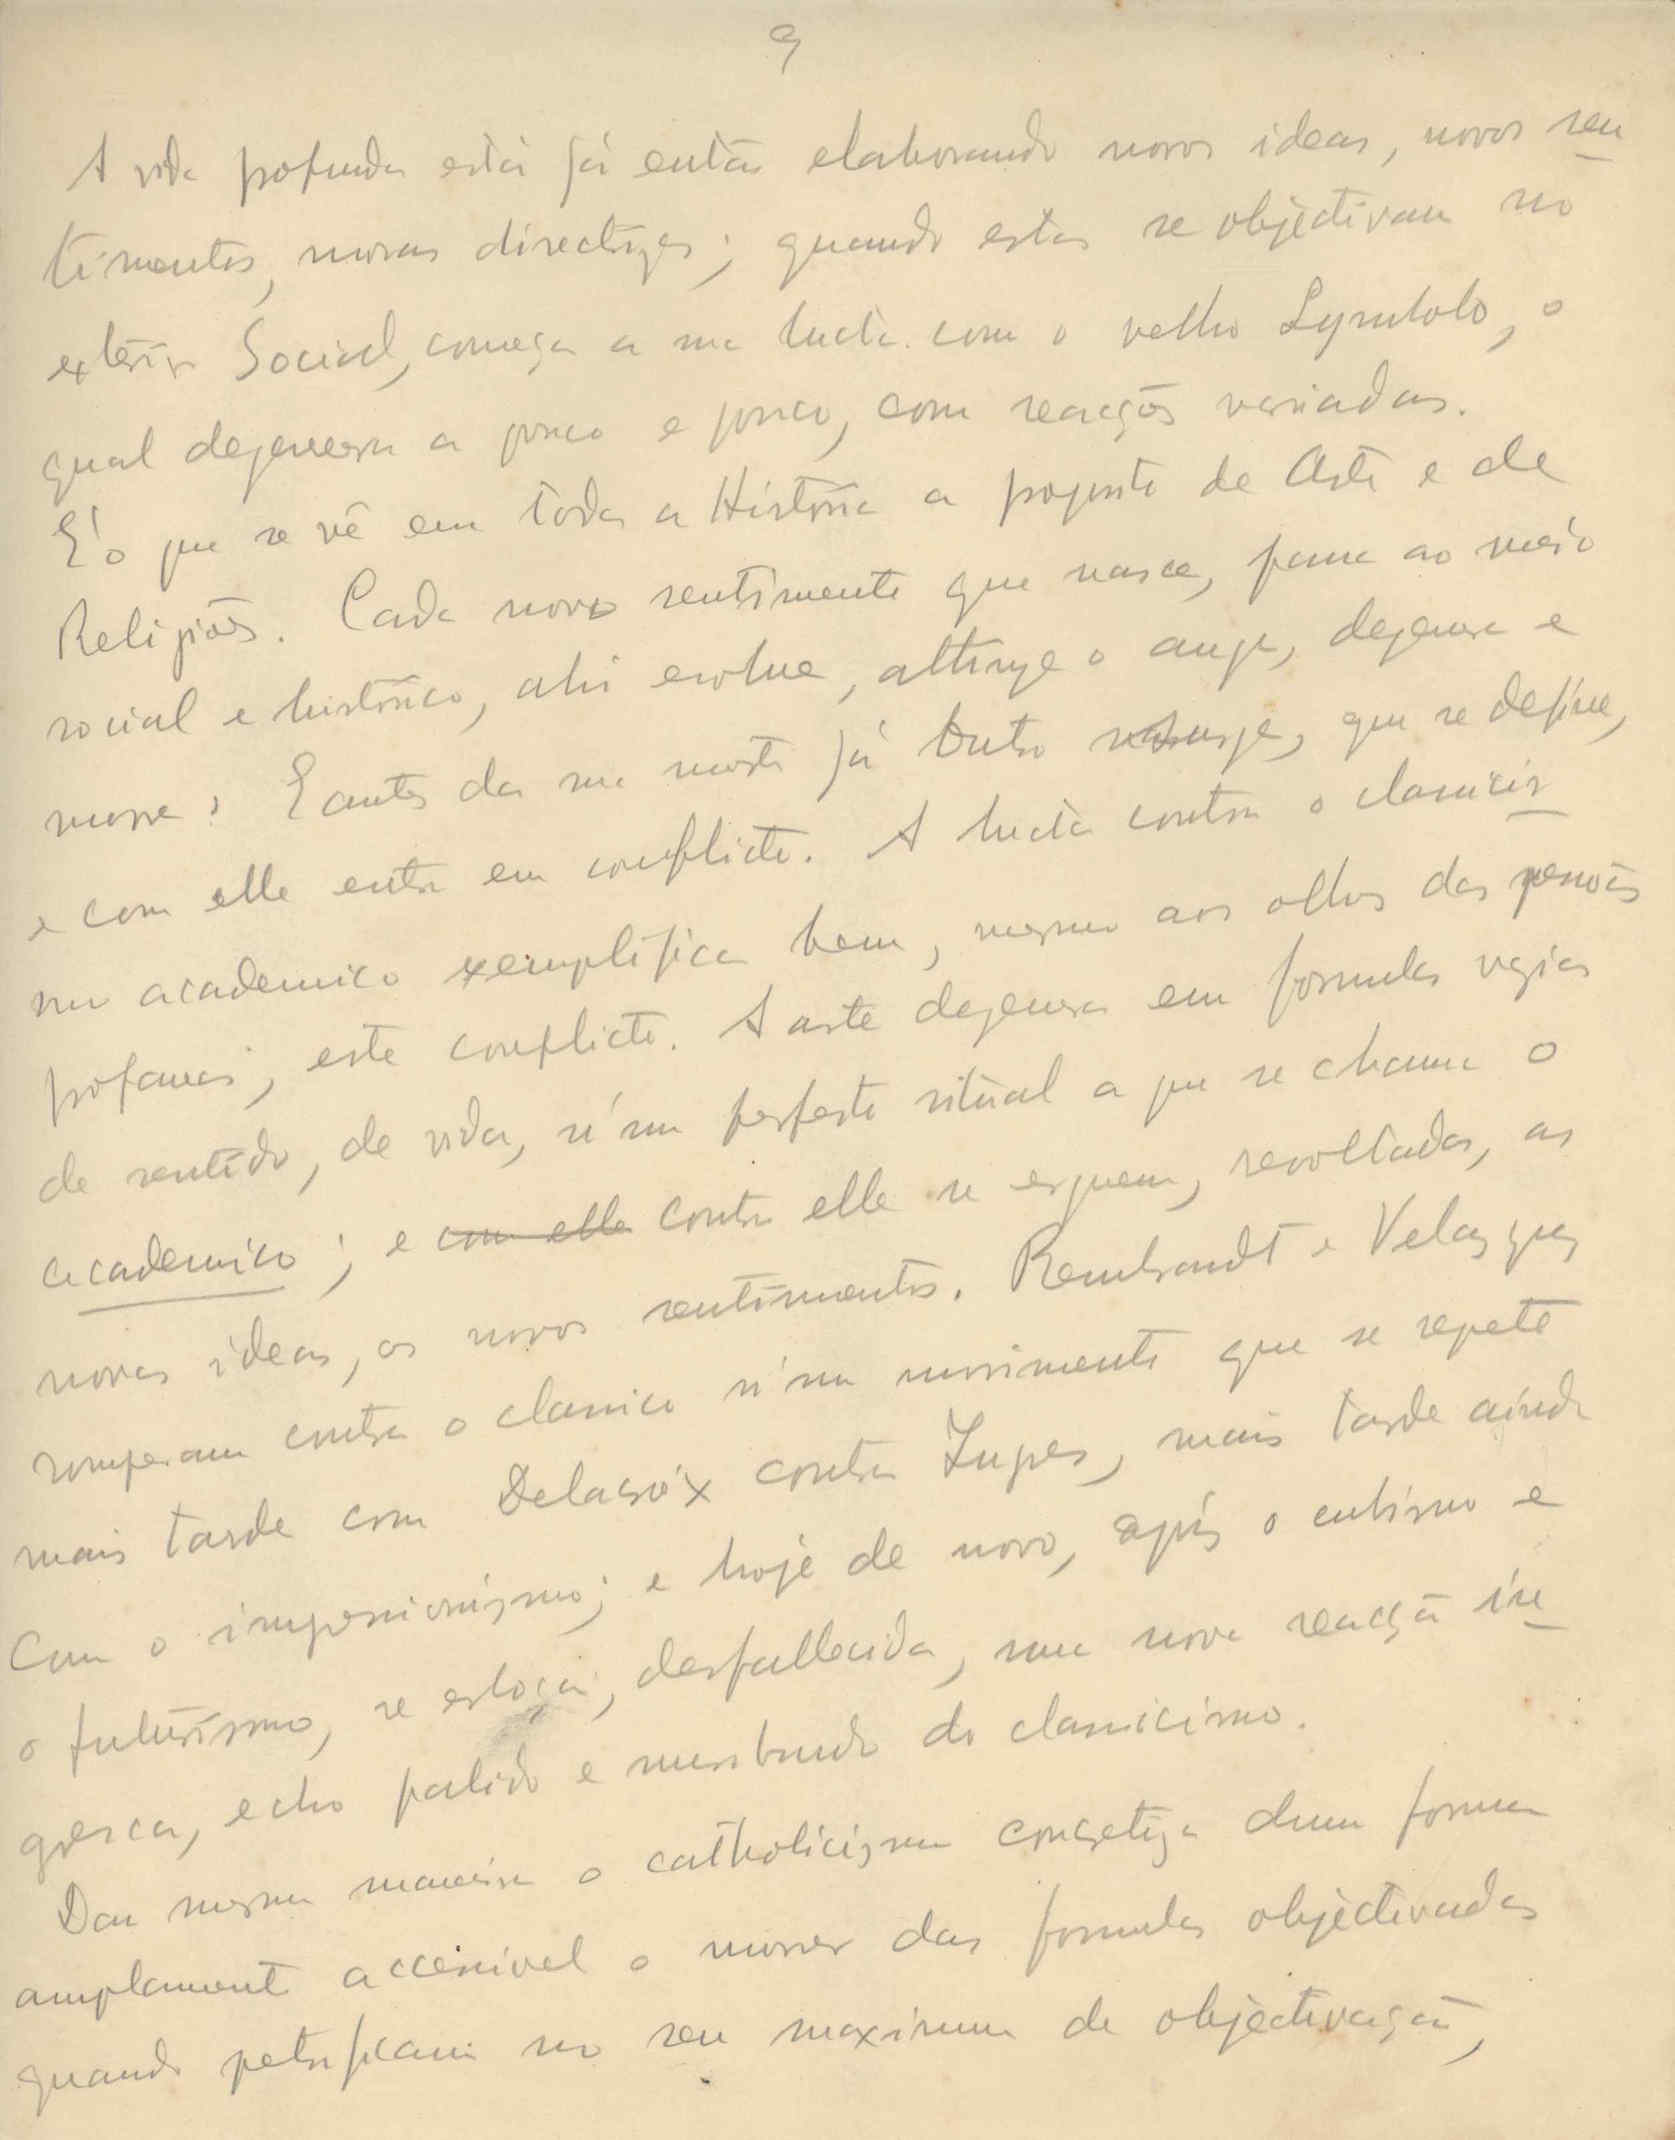 9
A vida profunda está já então elaborando novas ideas, novos sen
timentos, novas directrizes; quando estas se objectivam no
exterior Social, começa a sua lucta com o velho Symbolo, o
qual degenera a pouco e pouco, com reacções variadas.
E' o que se vê em toda a Historia a proposito de Arte e de
Religiões. Cada novo sentimento que nasce, passa ao meio
social e historico, ahi evolue, attinge o auge, degenera e
morre: E antes da sua morte já Outro surge, que se define,
e com elle entra em conflicto. A lucta contra o classicis
mo academico exemplifica bem, mesmo aos olhos das pessoas
profanas, este conflicto. A arte degenera em formulas vazias
de sentido, de vida, n'um perfeito ritual a que se chama o
academico; e com elle contra elle se erguem, revoltadas, as
novas ideas, os novos sentimentos. Rembrandt e Velazquez
romperam contra o classico n'um movimento que se repete
mais tarde com Delacroix contra Ingres, mais tarde ainda
Com o impressionismo; e hoje de novo, após o cubismo e
o futurismo, se esboça, desfallecida, uma nova reacção in
gresca, echo palido e moribundo do classicismo.
Da mesma maneira o catholicismo concretiza duma forma
amplamente accessivel o morrer das formulas objectivadas
quando petrificam no seu maximum de objectivação,